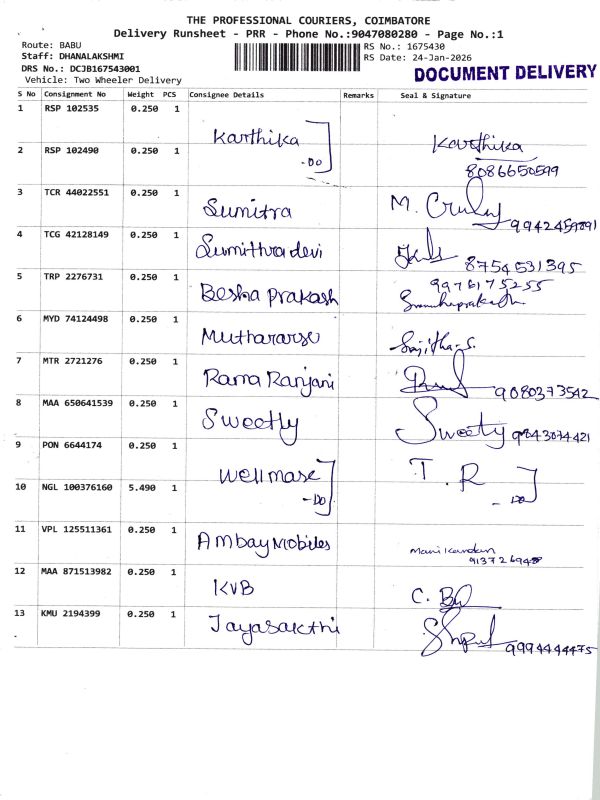 THE PROFESSIONAL COURIERS, COIMBATORE
Delivery Runsheet - PRR - Phone No.:9047080280 - Page No.:1
Route: BABU
Staff: DHANALAKSHMI
DRS No.: DCJB167543001
Vehicle: Two Wheeler Delivery
RS No.: 1675430
RS Date: 24-Jan-2026
DOCUMENT DELIVERY
S No Consignment No Weight PCS Consignee Details Remarks Seal & Signature
1 RSP 102535 0.250 1 Karthika Karthika
-DO 8086650599
2 RSP 102490 0.250 1
3 TCR 44022551 0.250 1 Sumitra M.
4 TCG 42128149 0.250 1 Sumithra devi 8754531395
5 TRP 2276731 0.250 1 Besha Prakash 9976175255
6 MYD 74124498 0.250 1 Mutharars Sajitha.S.
7 MTR 2721276 0.250 1 Rama Ranjani 9080373542
8 MAA 650641539 0.250 1 Sweetly Sweety 9843074421
9 PON 6644174 0.250 1 Wellmase T. R
-DO - DO
10 NGL 100376160 5.490 1
11 VPL 125511361 0.250 1 Ambay Mobiles Manikandan
12 MAA 871513982 0.250 1 KVB C.
13 KMU 2194399 0.250 1 Jayasakthi 9994444475